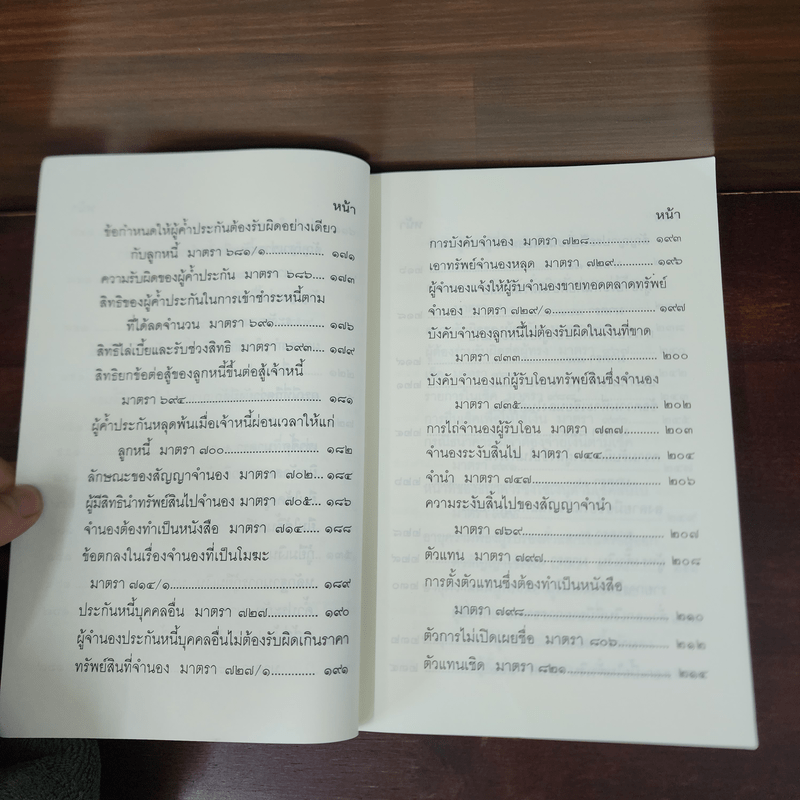 หน้า
ข้อกำหนดให้ผู้ค้ำประกันต้องรับผิดอย่างเดียว
กับลูกหนี้ มาตรา ๖๘๑/๑............... ๑๗๑
ความรับผิดของผู้ค้ำประกัน มาตรา ๖๘๖.... ๑๗๓
สิทธิของผู้ค้ำประกันในการเข้าชำระหนี้ตาม
ที่ได้ลดจำนวน มาตรา ๖๙๑............ ๑๗๖
สิทธิไล่เบี้ยและรับช่วงสิทธิ มาตรา ๖๙๓.... ๑๗๙
สิทธิยกข้อต่อสู้ของลูกหนี้ขึ้นต่อสู้เจ้าหนี้
มาตรา ๖๙๔.................................. ๑๘๑
ผู้ค้ำประกันหลุดพ้นเมื่อเจ้าหนี้ผ่อนเวลาให้แก่
ลูกหนี้ มาตรา ๗๐๐........................ ๑๘๒
ลักษณะของสัญญาจำนอง มาตรา ๗๐๒... ๑๘๔
ผู้มีสิทธินำทรัพย์สินไปจำนอง มาตรา ๗๐๕... ๑๘๖
จำนองต้องทำเป็นหนังสือ มาตรา ๗๑๔..... ๑๘๘
ข้อตกลงในเรื่องจำนองที่เป็นโมฆะ
มาตรา ๗๑๔/๑............................... ๑๘๙
ประกันหนี้บุคคลอื่น มาตรา ๗๒๗............ ๑๙๐
ผู้จำนองประกันหนี้บุคคลอื่นไม่ต้องรับผิดเกินราคา
ทรัพย์สินที่จำนอง มาตรา ๗๒๗/๑............ ๑๙๑
หน้า
การบังคับจำนอง มาตรา ๗๒๘................ ๑๙๓
เอาทรัพย์จำนองหลุด มาตรา ๗๒๙.......... ๑๙๖
ผู้จำนองแจ้งให้ผู้รับจำนองขายทอดตลาดทรัพย์
จำนอง มาตรา ๗๒๙/๑........................ ๑๙๗
บังคับจำนองลูกหนี้ไม่ต้องรับผิดในเงินที่ขาด
มาตรา ๗๓๓................................... ๒๐๐
บังคับจำนองแก่ผู้รับโอนทรัพย์สินซึ่งจำนอง
มาตรา ๗๓๕................................... ๒๐๒
การไถ่จำนองผู้รับโอน มาตรา ๗๓๗.......... ๒๐๓
จำนองระงับสิ้นไป มาตรา ๗๔๔............... ๒๐๔
จำนำ มาตรา ๗๔๗............................. ๒๐๖
ความระงับสิ้นไปของสัญญาจำนำ
มาตรา ๗๖๙................................... ๒๐๗
ตัวแทน มาตรา ๗๙๗........................... ๒๐๘
การตั้งตัวแทนซึ่งต้องทำเป็นหนังสือ
มาตรา ๗๙๘................................... ๒๑๐
ตัวการไม่เปิดเผยชื่อ มาตรา ๘๐๖............ ๒๑๒
ตัวแทนเชิด มาตรา ๘๒๑....................... ๒๑๔